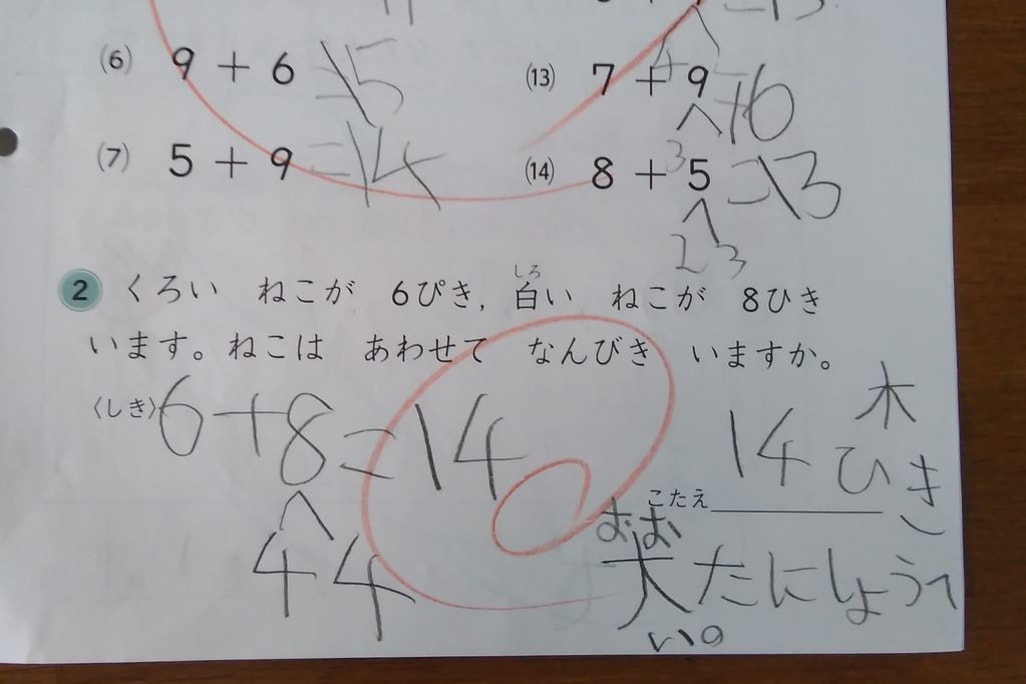 (6) 9 + 6 = 15
(13) 7 + 9 = 16
(7) 5 + 9 = 14
(14) 8 + 5 = 13
3
2 3
2 くろい ねこが 6ぴき, 白い ねこが 8ひき
しろ
います。ねこは あわせて なんびき いますか。
〈しき〉6+8=14
4 4
木
14ひき
こたえ
おお
大たにしょうへ
いの